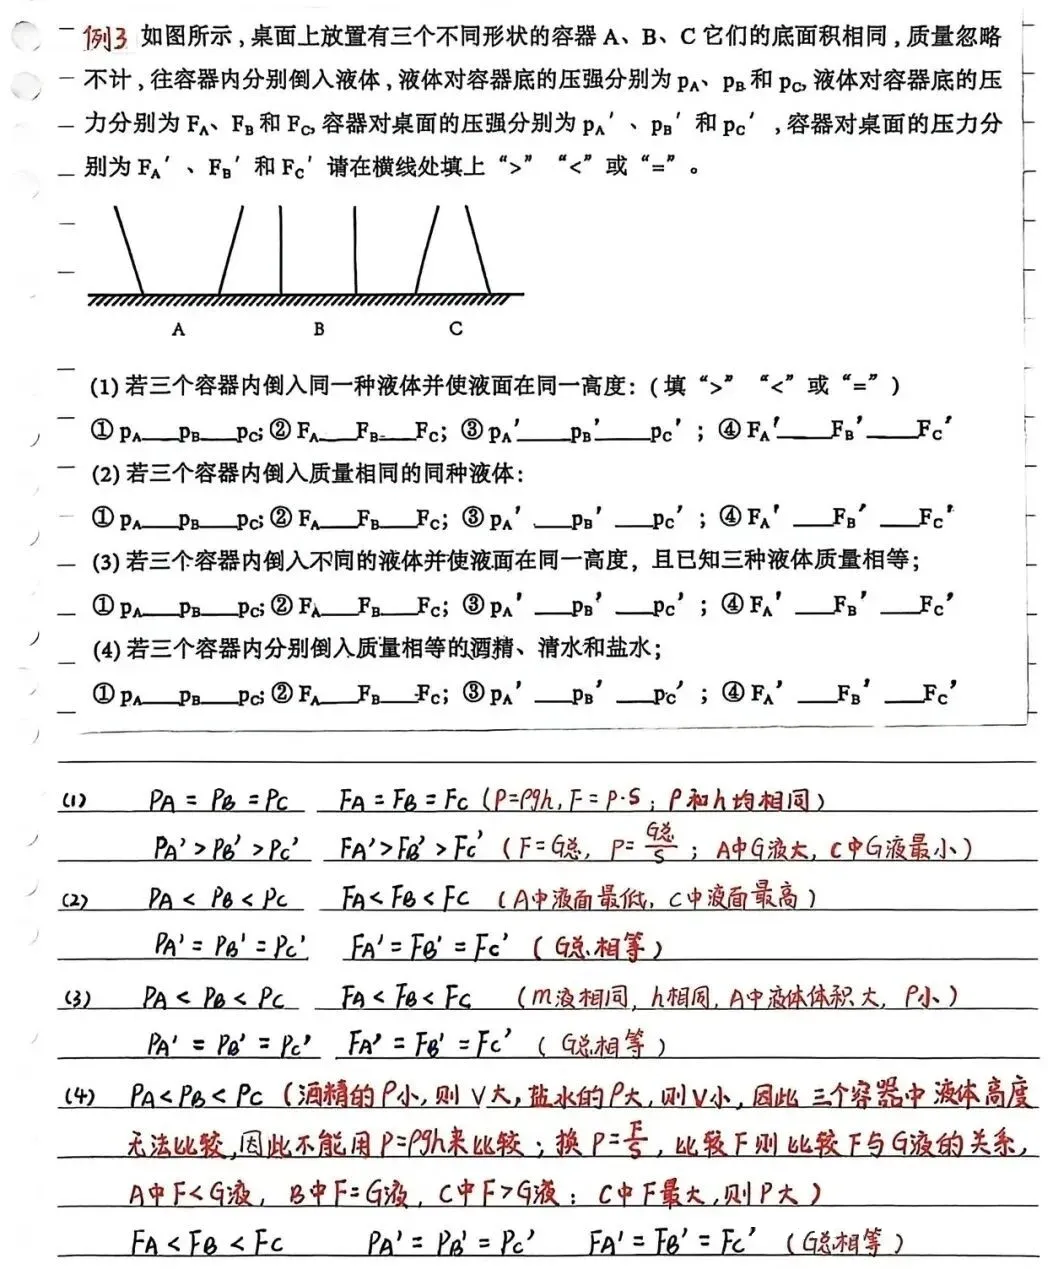 例3 如图所示,桌面上放置有三个不同形状的容器 A、B、C 它们的底面积相同,质量忽略
不计,往容器内分别倒入液体,液体对容器底的压强分别为 pA、pB 和 pC,液体对容器底的压
力分别为 FA、FB 和 FC,容器对桌面的压强分别为 pA′、pB′ 和 pC′,容器对桌面的压力分
别为 FA′、FB′ 和 FC′ 请在横线处填上“>”“<”或“=”。
A B C
(1) 若三个容器内倒入同一种液体并使液面在同一高度:(填“>”“<”或“=”)
① pA___pB___pC; ② FA___FB___FC; ③ pA′___pB′___pC′; ④ FA′___FB′___FC′
(2) 若三个容器内倒入质量相同的同种液体:
① pA___pB___pC; ② FA___FB___FC; ③ pA′___pB′___pC′; ④ FA′___FB′___FC′
(3) 若三个容器内倒入不同的液体并使液面在同一高度,且已知三种液体质量相等;
① pA___pB___pC; ② FA___FB___FC; ③ pA′___pB′___pC′; ④ FA′___FB′___FC′
(4) 若三个容器内分别倒入质量相等的酒精、清水和盐水;
① pA___pB___pC; ② FA___FB___FC; ③ pA′___pB′___pC′; ④ FA′___FB′___FC′
(1) PA = PB = PC FA = FB = FC (P=ρgh, F=P·S; ρ和h均相同)
PA′ > PB′ > PC′ FA′ > FB′ > FC′ (F=G总, P=G总/S; A中G液大, C中G液最小)
(2) PA < PB < PC FA < FB < FC (A中液面最低, C中液面最高)
PA′ = PB′ = PC′ FA′ = FB′ = FC′ (G总相等)
(3) PA < PB < PC FA < FB < FC (m液相同, h相同, A中液体体积大, ρ小)
PA′ = PB′ = PC′ FA′ = FB′ = FC′ (G总相等)
(4) PA < PB < PC (酒精的ρ小,则V大,盐水的ρ大,则V小,因此三个容器中液体高度
无法比较,因此不能用P=ρgh来比较;换P=F/S,比较F则比较F与G液的关系,
A中F<G液, B中F=G液, C中F>G液; C中F最大,则P大)
FA < FB < FC PA′ = PB′ = PC′ FA′ = FB′ = FC′ (G总相等)